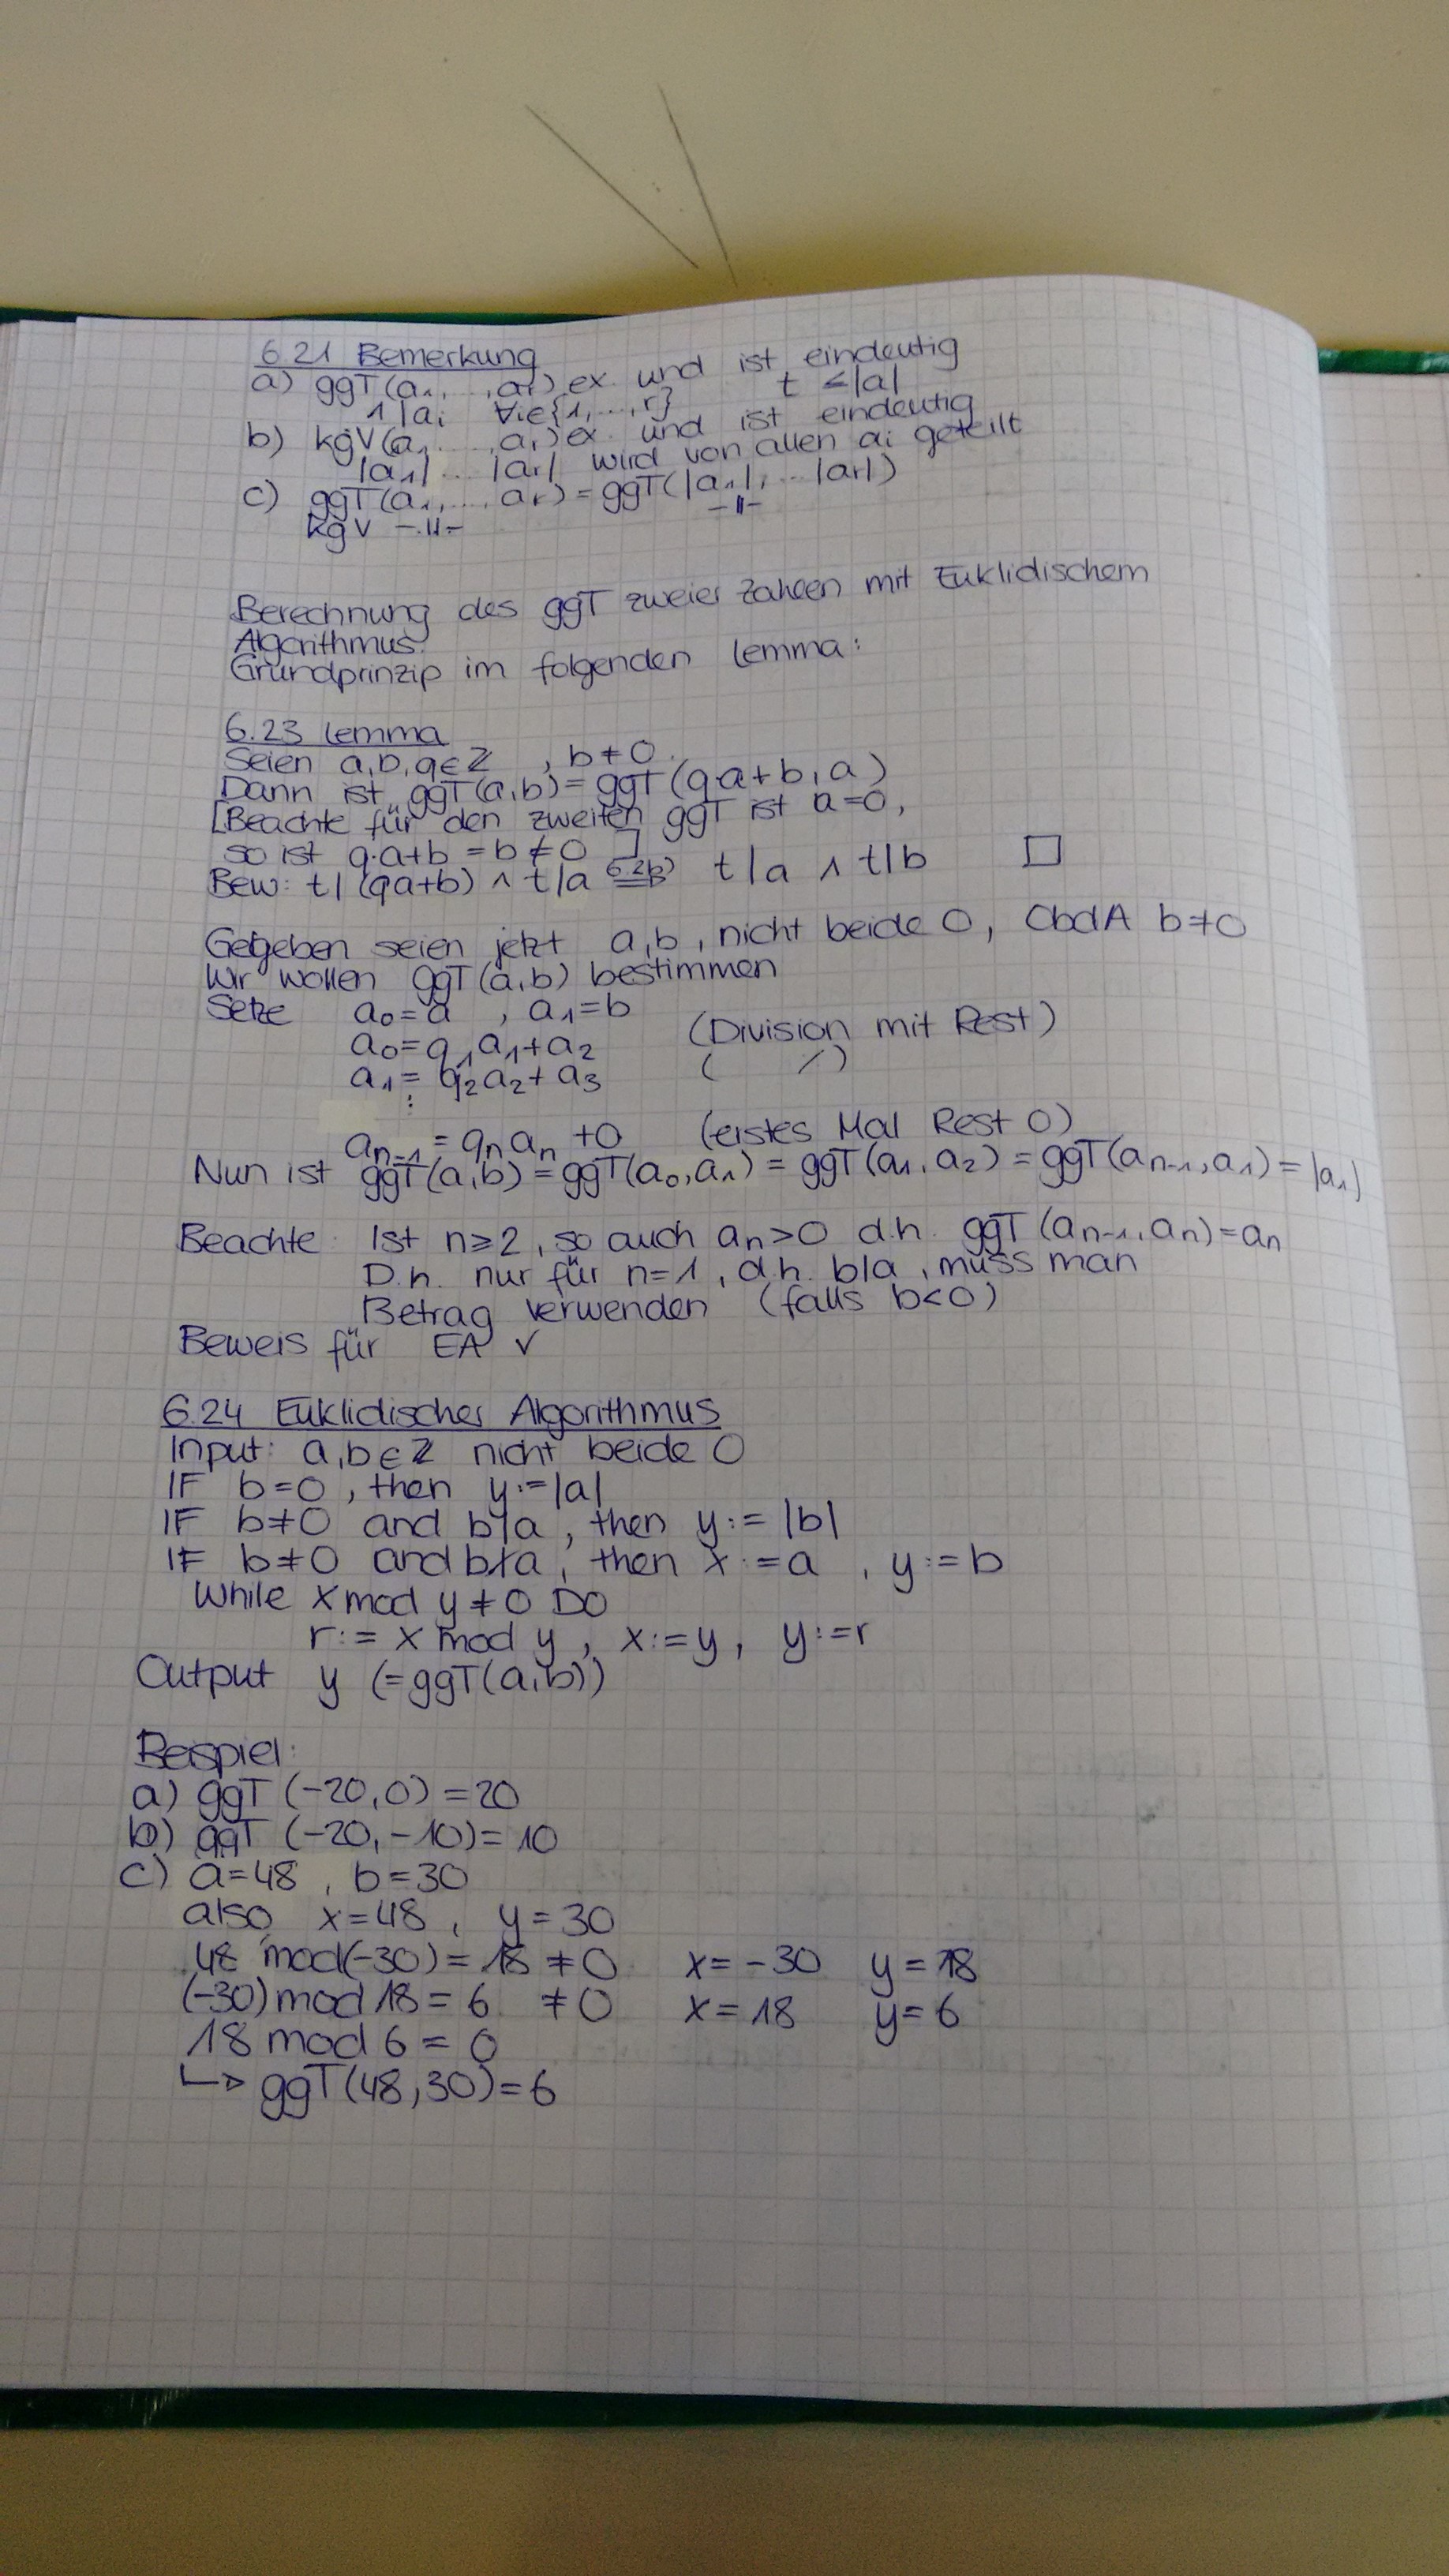 6.21 Bemerkung
a) ggT(a₁, ..., aᵣ) ex. und ist eindeutig
1 | aᵢ ∀i∈{1, ..., r} t ≤ |a|
b) kgV(a₁, ..., aᵣ) ex. und ist eindeutig
|a₁| ... |aᵣ| wird von allen aᵢ geteilt
c) ggT(a₁, ..., aᵣ) = ggT(|a₁|, ... |aᵣ|)
kgV -"- -"-
Berechnung des ggT zweier Zahlen mit Euklidischem
Algorithmus.
Grundprinzip im folgenden Lemma:
6.23 Lemma
Seien a,b,q∈ℤ , b≠0.
Dann ist ggT(a,b) = ggT(q·a+b, a)
[Beachte für den zweiten ggT ist a=0,
so ist q·a+b = b ≠ 0 ]
Bew: t | (qa+b) ∧ t|a ⇔ t|a ∧ t|b □
Gegeben seien jetzt a,b, nicht beide 0, ObdA b≠0
Wir wollen ggT(a,b) bestimmen
Setze a₀=a , a₁=b
a₀=q₁a₁+a₂ (Division mit Rest)
a₁ = q₂a₂+a₃ ( ⁄ )
⋮
aₙ₋₁ = qₙaₙ +0 (erstes Mal Rest 0)
Nun ist ggT(a,b) = ggT(a₀,a₁) = ggT(a₁,a₂) = ggT(aₙ₋₁,a₁) = |a₁|
Beachte: Ist n≥2, so auch aₙ>0 d.h. ggT(aₙ₋₁,aₙ)=aₙ
D.h. nur für n=1, d.h. b|a, muss man
Betrag verwenden (falls b<0)
Beweis für EA ✓
6.24 Euklidischer Algorithmus
Input: a,b∈ℤ nicht beide 0
IF b=0, then y:=|a|
IF b≠0 and b|a, then y:=|b|
IF b≠0 and b∤a, then x:=a , y:=b
While x mod y ≠ 0 DO
r:= x mod y, x:=y, y:=r
Output y (=ggT(a,b))
Beispiel:
a) ggT (-20,0) = 20
b) ggT (-20,-10) = 10
c) a=48 , b=30
also x=48 , y=30
48 mod(-30) = 18 ≠0 x=-30 y=18
(-30) mod 18 = 6 ≠0 x=18 y=6
18 mod 6 = 0
↳ ggT(48,30)=6